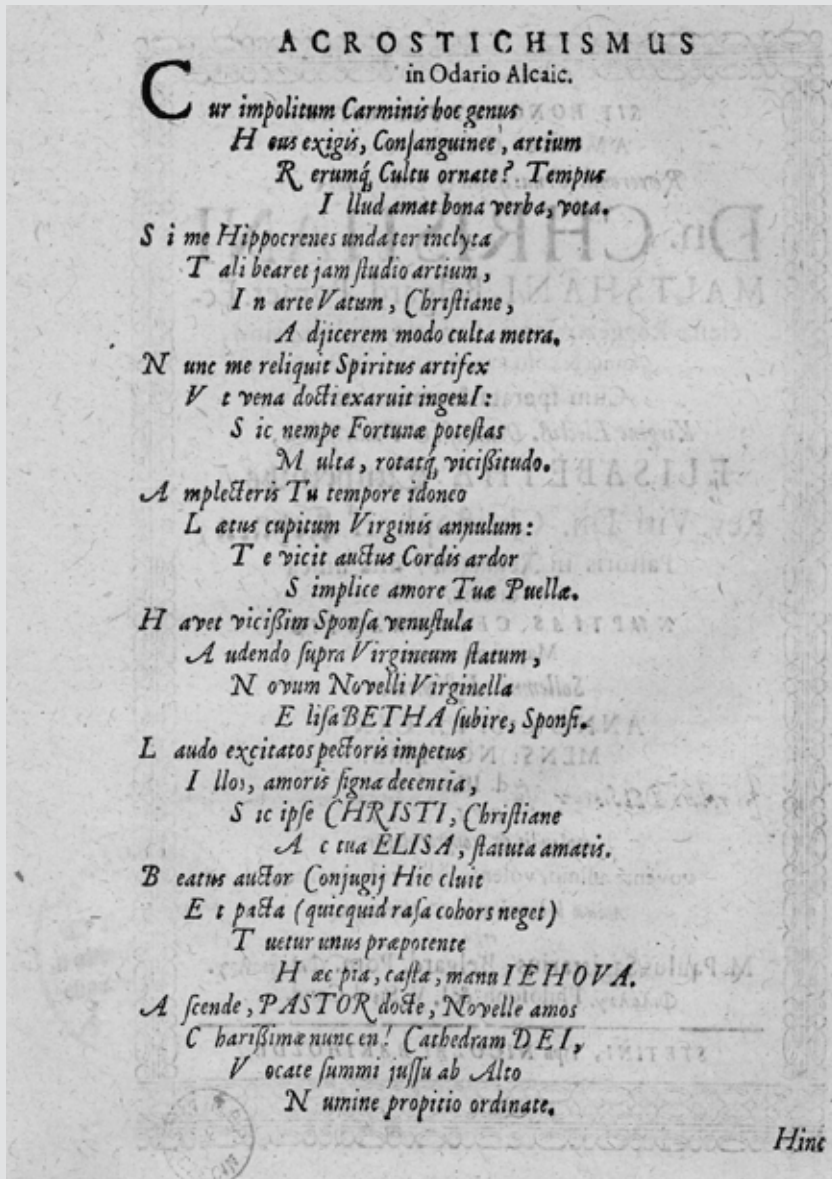 ACROSTICHISMUS
in Odario Alcaic.
Cur impolitum Carminis hoc genus
Heus exigis, Consanguinee, artium
Rerumq́, Cultu ornate? Tempus
Illud amat bona verba, vota.
Si me Hippocrenes unda ter inclyta
Tali bearet jam studio artium,
In arte Vatum, Christiane,
Adjicerem modo culta metra.
Nunc me reliquit Spiritus artifex
Vt vena docti exaruit ingenI:
Sic nempe Fortunæ potestas
Multa, rotatq́, vicißitudo.
Amplecteris Tu tempore idoneo
Lætus cupitum Virginis annulum:
Te vicit auctus Cordis ardor
Simplice amore Tuæ Puellæ.
Havet vicißim Sponsa venustula
Audendo supra Virgineum statum,
Novum Novelli Virginella
ElisaBETHA subire, Sponsi.
Laudo excitatos pectoris impetus
Illos, amoris signa decentia,
Sic ipse CHRISTI, Christiane
Ac tua ELISA, statuta amatis.
Beatus auctor Conjugij Hic cluit
Et pacta (quicquid rasa cohors neget)
Tuetur unus præpotente
Hæc pia, casta, manu IEHOVA.
Ascende, PASTOR docte, Novelle amos
Charißimæ nunc en! Cathedram DEI,
Vocate summi jussu ab Alto
Numine propitio ordinate.
Hinc